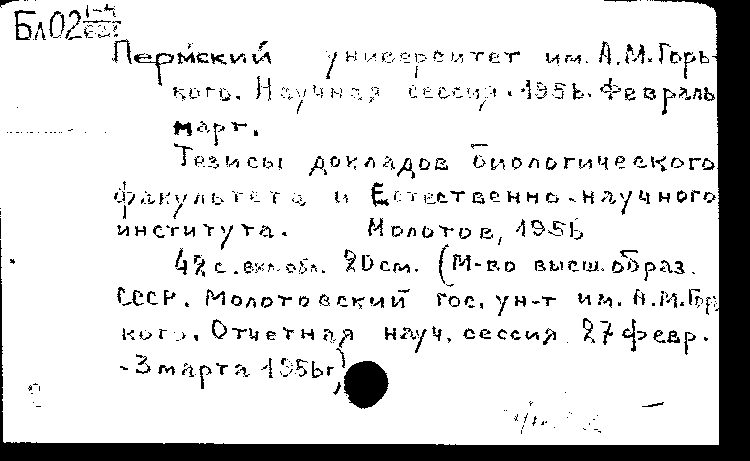 Бл02 1-4
Пермский университет им. А.М.Горь-
кого. Научная сессия. 1956. Февраль
март.
Тезисы докладов биологического
факультета и Естественно-научного
института. Молотов, 1956
42 с. вкл. обл. 20 см. (М-во высш. образ.
СССР. Молотовский гос. ун-т им. А.М.Горь
кого. Отчетная науч. сессия 27 февр.
-3 марта 1956г)